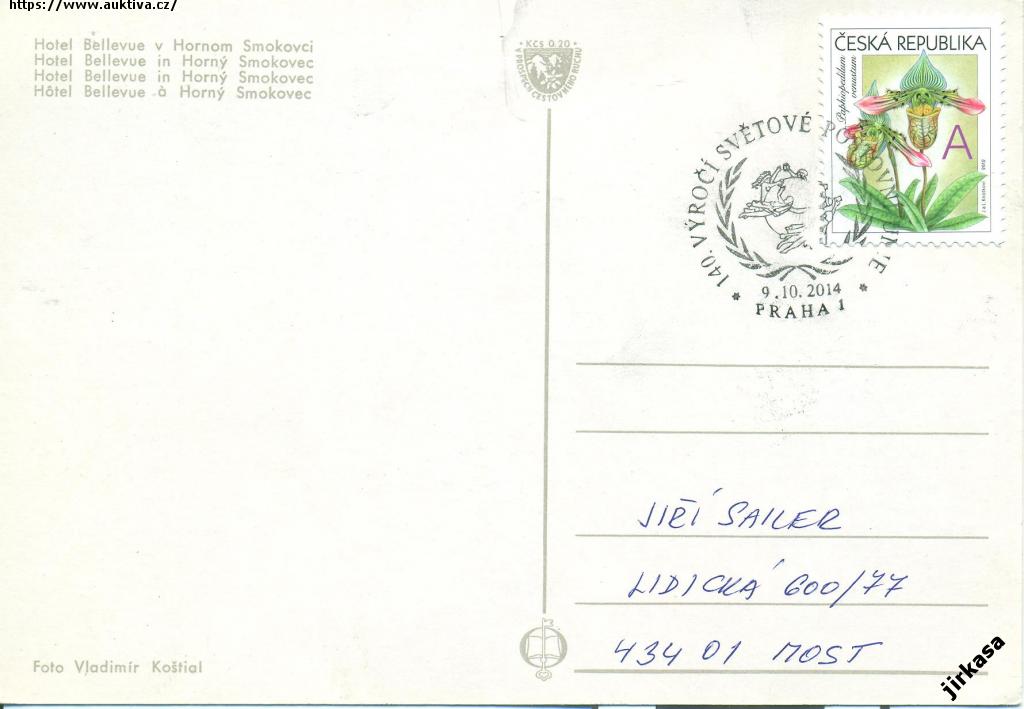 https://www.auktiva.cz/
Hotel Bellevue v Hornom Smokovci
Hotel Bellevue in Horný Smokovec
Hotel Bellevue in Horný Smokovec
Hôtel Bellevue à Horný Smokovec
• KČs 0,20 •
V PROSPECH CESTOVNÉHO RUCHU
ČESKÁ REPUBLIKA
Paphiopedilum
venustum
A
2012
140. VÝROČÍ SVĚTOVÉ POŠTOVNÍ UNIE
9.10.2014
PRAHA 1
JIŘÍ SAILER
LIDICKÁ 600/77
434 01 MOST
Foto Vladimír Koštial
jirkasa